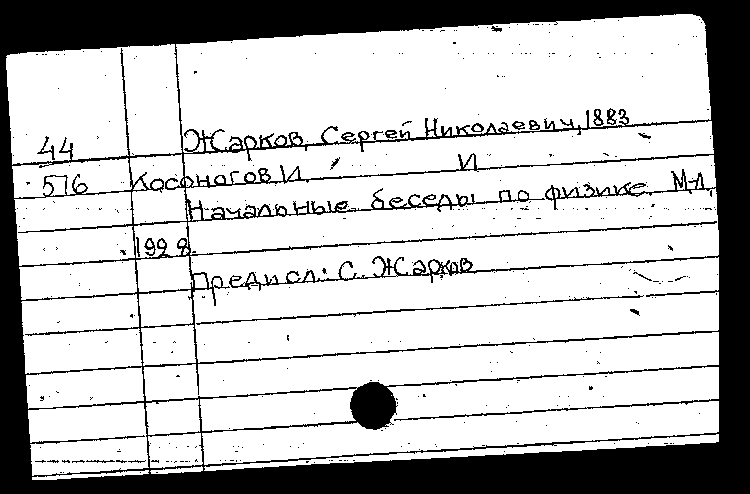 44 Жарков, Сергей Николаевич, 1883
И
576 Косоногов И.
Начальные беседы по физике. М-Л,
1928.
Предисл.: С. Жарков